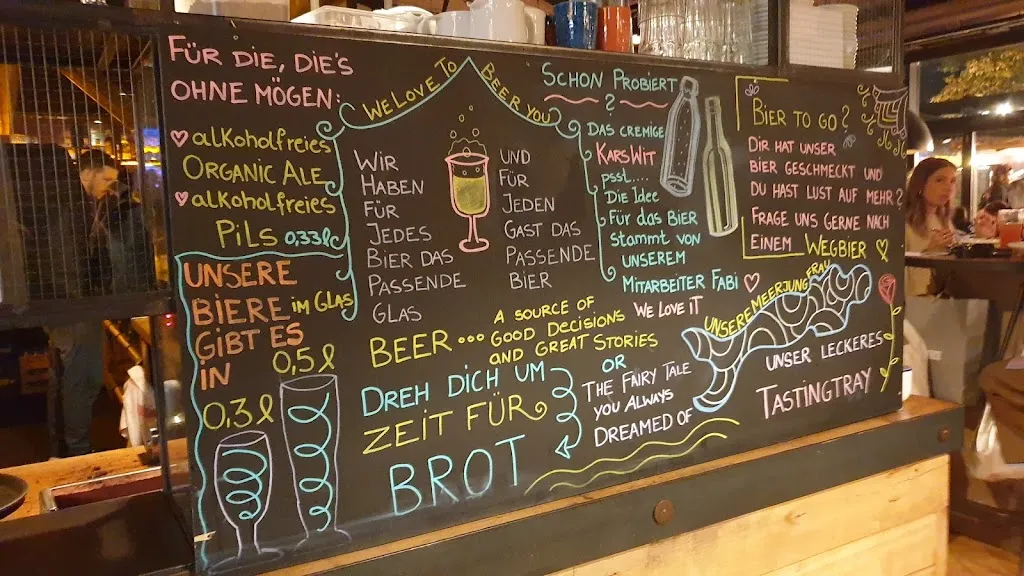 FÜR DIE, DIE'S
OHNE MÖGEN:
alkoholfreies
ORGANIC ALE
alkoholfreies
PILS 0,33l
UNSERE
BIERE im GLAS
GIBT ES
IN
0,5l
0,3l
WE LOVE TO BEER YOU
WIR
HABEN
FÜR
JEDES
BIER DAS
PASSENDE
GLAS
UND
FÜR
JEDEN
GAST DAS
PASSENDE
BIER
BEER ... A SOURCE OF
GOOD DECISIONS
AND GREAT STORIES
OR
THE FAIRY TALE
YOU ALWAYS
DREAMED OF
DREH DICH UM
ZEIT FÜR
BROT
SCHON PROBIERT
?
DAS CREMIGE
KARSWIT
psst.....
Die Idee
Für das BIER
Stammt von
UNSEREM
MITARBEITER FABI
WE LOVE IT
BIER TO GO?
DIR HAT UNSER
BIER GESCHMECKT UND
DU HAST LUST AUF MEHR?
FRAGE UNS GERNE NACH
EINEM WEGBIER
UNSERE MEERJUNGFRAU
UNSER LECKERES
TASTINGTRAY